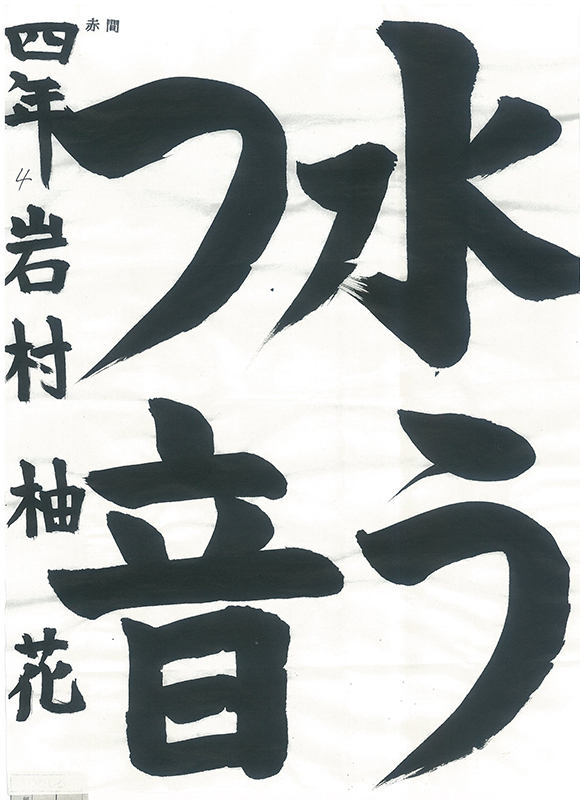 水う
つ音
四年 岩村 柚花
4
赤間